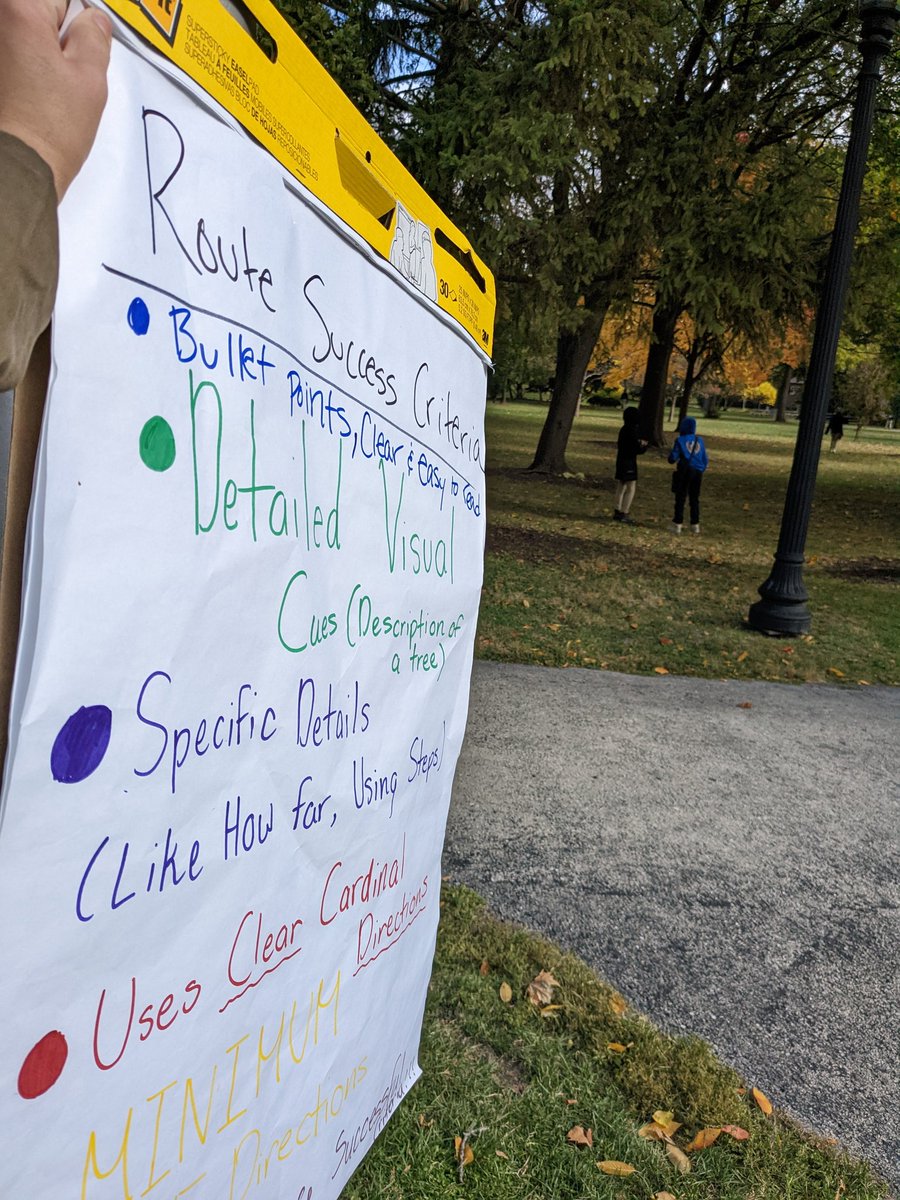 SUPERSTICKY EASEL PAD
TABLEAU À FEUILLES MOBILES SUPERCOLLANTES
SUPERADHESIVAS BLOC DE HOJAS REPOSICIONABLES
30
3M
Route Success Criteria
Bullet Points, Clear & easy to read
Detailed Visual
Cues (Description of
a tree)
Specific Details
(Like How far, Using Steps)
Uses Clear Cardinal
Directions
MINIMUM
Directions
Successful